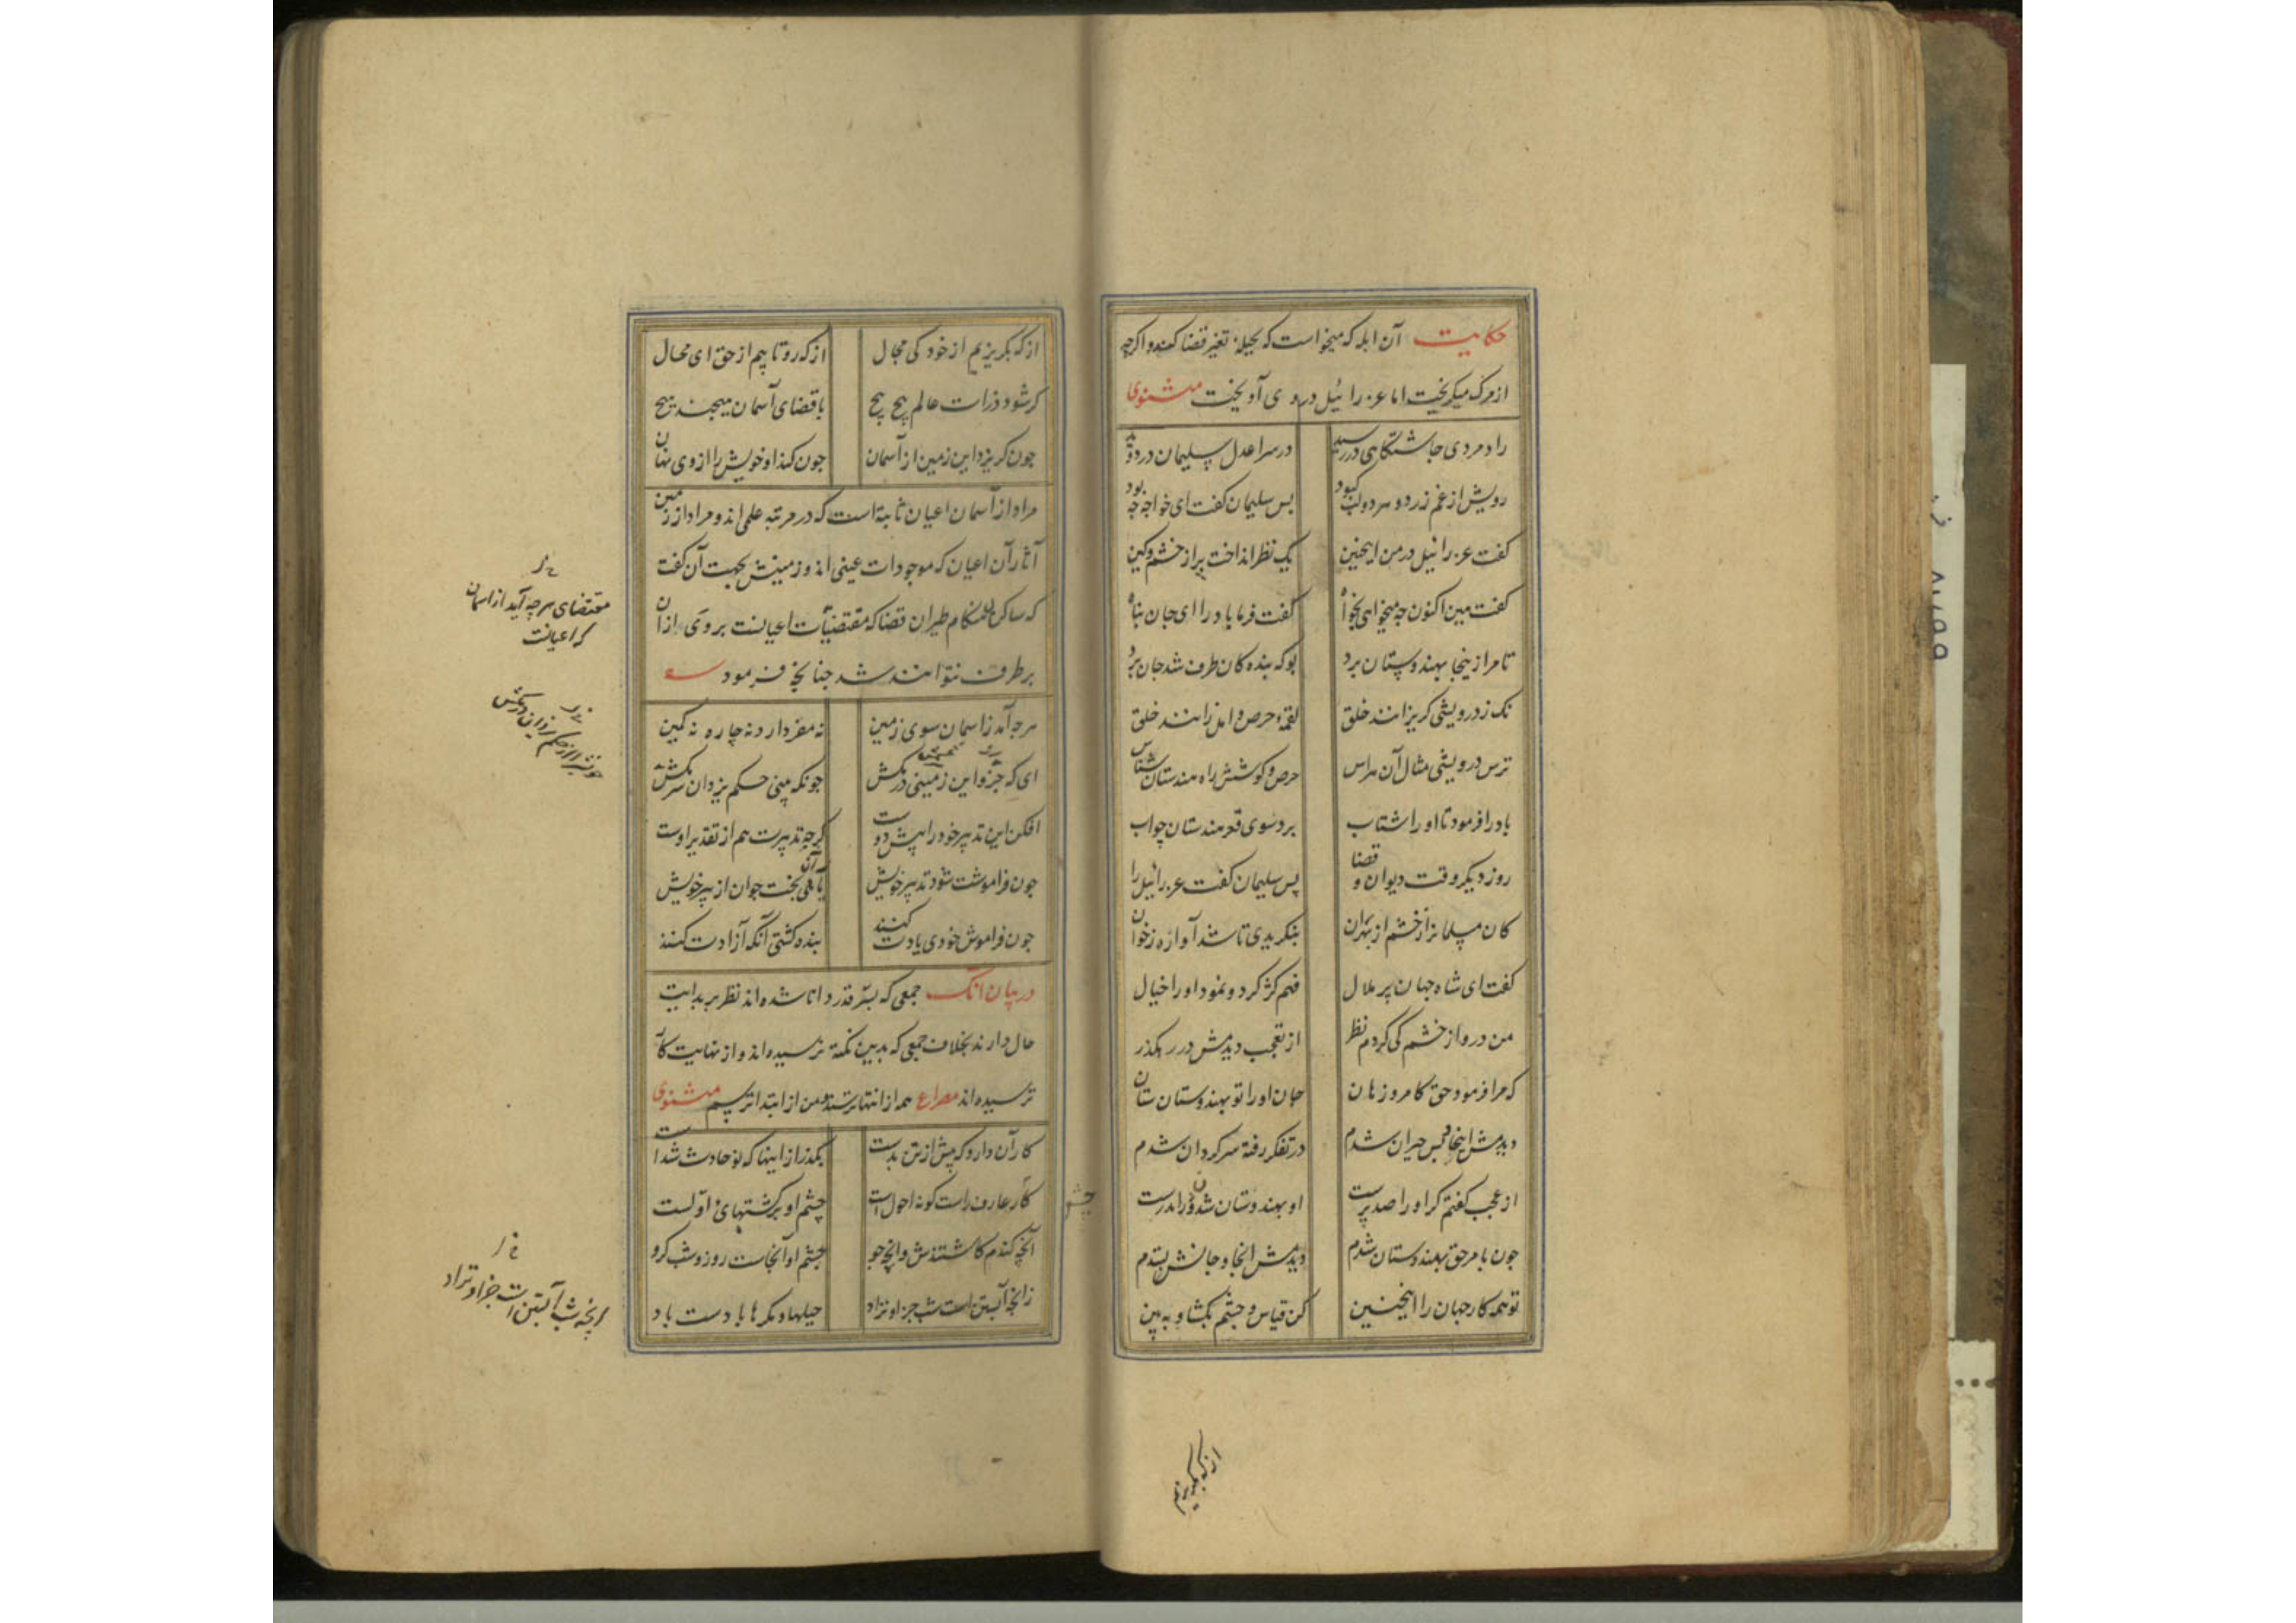 حکایت آن ابله که میخواست که بحیله تغیر قضا کند و اکرچه
از مرک میکریخت اما عزرائیل در وی آویخت مثنوی
راد مردی جاشتکاهی در رسید در سرا عدل سلیمان در دوید
رویش از غم زرد و سر دو لب کبود بس سلیمان کفت ای خواجه جه بود
کفت عزرائیل در من اینچنین یک نظر انداخت پر از خشم و کین
کفت هین اکنون جه میخواهی بخواه کفت فرما باد را ای جان پناه
تا مرا زینجا بهندوستان برد بو که بنده کان طرف شد جان برد
نک ز درویشی کریزانند خلق لقمهٔ حرص و امل زانند خلق
ترس درویشی مثال آن هراس حرص و کوشش را هندستان شناس
باد را فرمود تا او را شتاب برد سوی قعر هندستان بر آب
روز دیکر وقت دیوان و قضا پس سلیمان کفت عزرائیل را
کان مسلمانرا ز خشم از بهر آن بنکریدی تا شد آواره ز خوان
کفت ای شاه جهان پر ملال فهم کژ کرد و نمود او را خیال
من درو از خشم کی کردم نظر از تعجب دیدمش در رهکذر
که مرا فرمود حق کامروز هان جان او را تو بهندوستان ستان
دیدمش اینجا و بس حیران شدم در تفکر رفته سرکردان شدم
از عجب کفتم کر او را صد پرست او بهندوستان شدن دور اندرست
جون بامر حق بهندوستان شدم دیدمش انجا و جانش بستدم
تو همه کار جهان را اینچنین کن قیاس و جشم بکشا و به بین
از که بکریزیم
از که بکریزیم از خود کی مجال از که رو تابیم از حق ای محال
کر شود ذرات عالم پیچ پیچ با قضای آسمان هیچند هیچ
جون کریزد این زمین از آسمان جون کند او خویش را از وی نهان
مراد از آسمان اعیان ثابته است که در مرتبه علمی اند و مراد از زمین
آثار آن اعیان که موجودات عینی اند و زمینش بجهت آن کفت
که ساکن هنکام طیران قضا که مقتضیات اعیانست بر وی از آن
بر طرف نتوانند شد جنانچه فرمود
هر جه آید ز اسمان سوی زمین نه مفر دارد نه چاره نه کمین
ای که جزو این زمینی در مکش جونکه بینی حکم یزدان سر مکش
افکن این تدبیر خود را پیش دوست کرچه تدبیرت هم از تقدیر اوست
جون فراموشت شود تدبیر خویش یابی آن بخت جوان از پیر خویش
جون فراموش خودی یادت کنند بنده کشتی آنکه آزادت کنند
در بیان آنک جمعی که بسر قدر دانا شده اند نظر بر بدایت
حال دارند بخلاف جمعی که بدین نکته نرسیده اند و از نهایت کار
ترسیده اند مصراع همه از انتها ترسند و من از ابتدا ترسم مثنوی
کار آن دارد که پیش از تن بدست بکذر از اینها که نو حادث شدست
کار عارف راست کو نه احولست چشم او بر کشتهای اولست
آنچه کندم کاشتندش وانچه جو جشم او آنجاست روز و شب کرو
زانچه آبستن است شب جز او نزاد حیلها و مکرها بادست باد
مقتضای هر چه آید از اسمان
که اعیانست